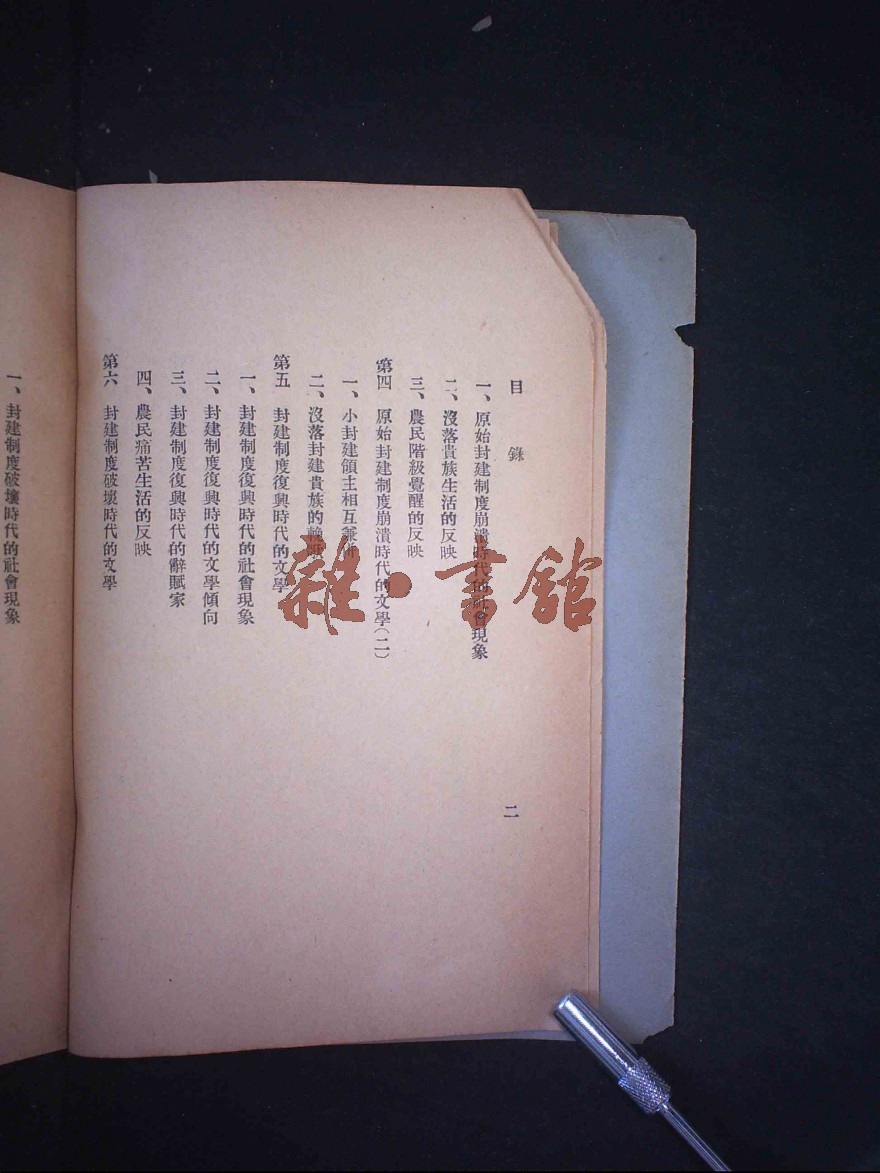 目 錄
一、原始封建制度崩潰時代的社會現象
二、沒落貴族生活的反映
三、農民階級覺醒的反映
第四 原始封建制度崩潰時代的文學(二)
一、小封建領主相互兼併
二、沒落封建貴族的
第五 封建制度復興時代的文學
一、封建制度復興時代的社會現象
二、封建制度復興時代的文學傾向
三、封建制度復興時代的辭賦家
四、農民痛苦生活的反映
第六 封建制度破壞時代的文學
二
一、封建制度破壞時代的社會現象
雜·書館